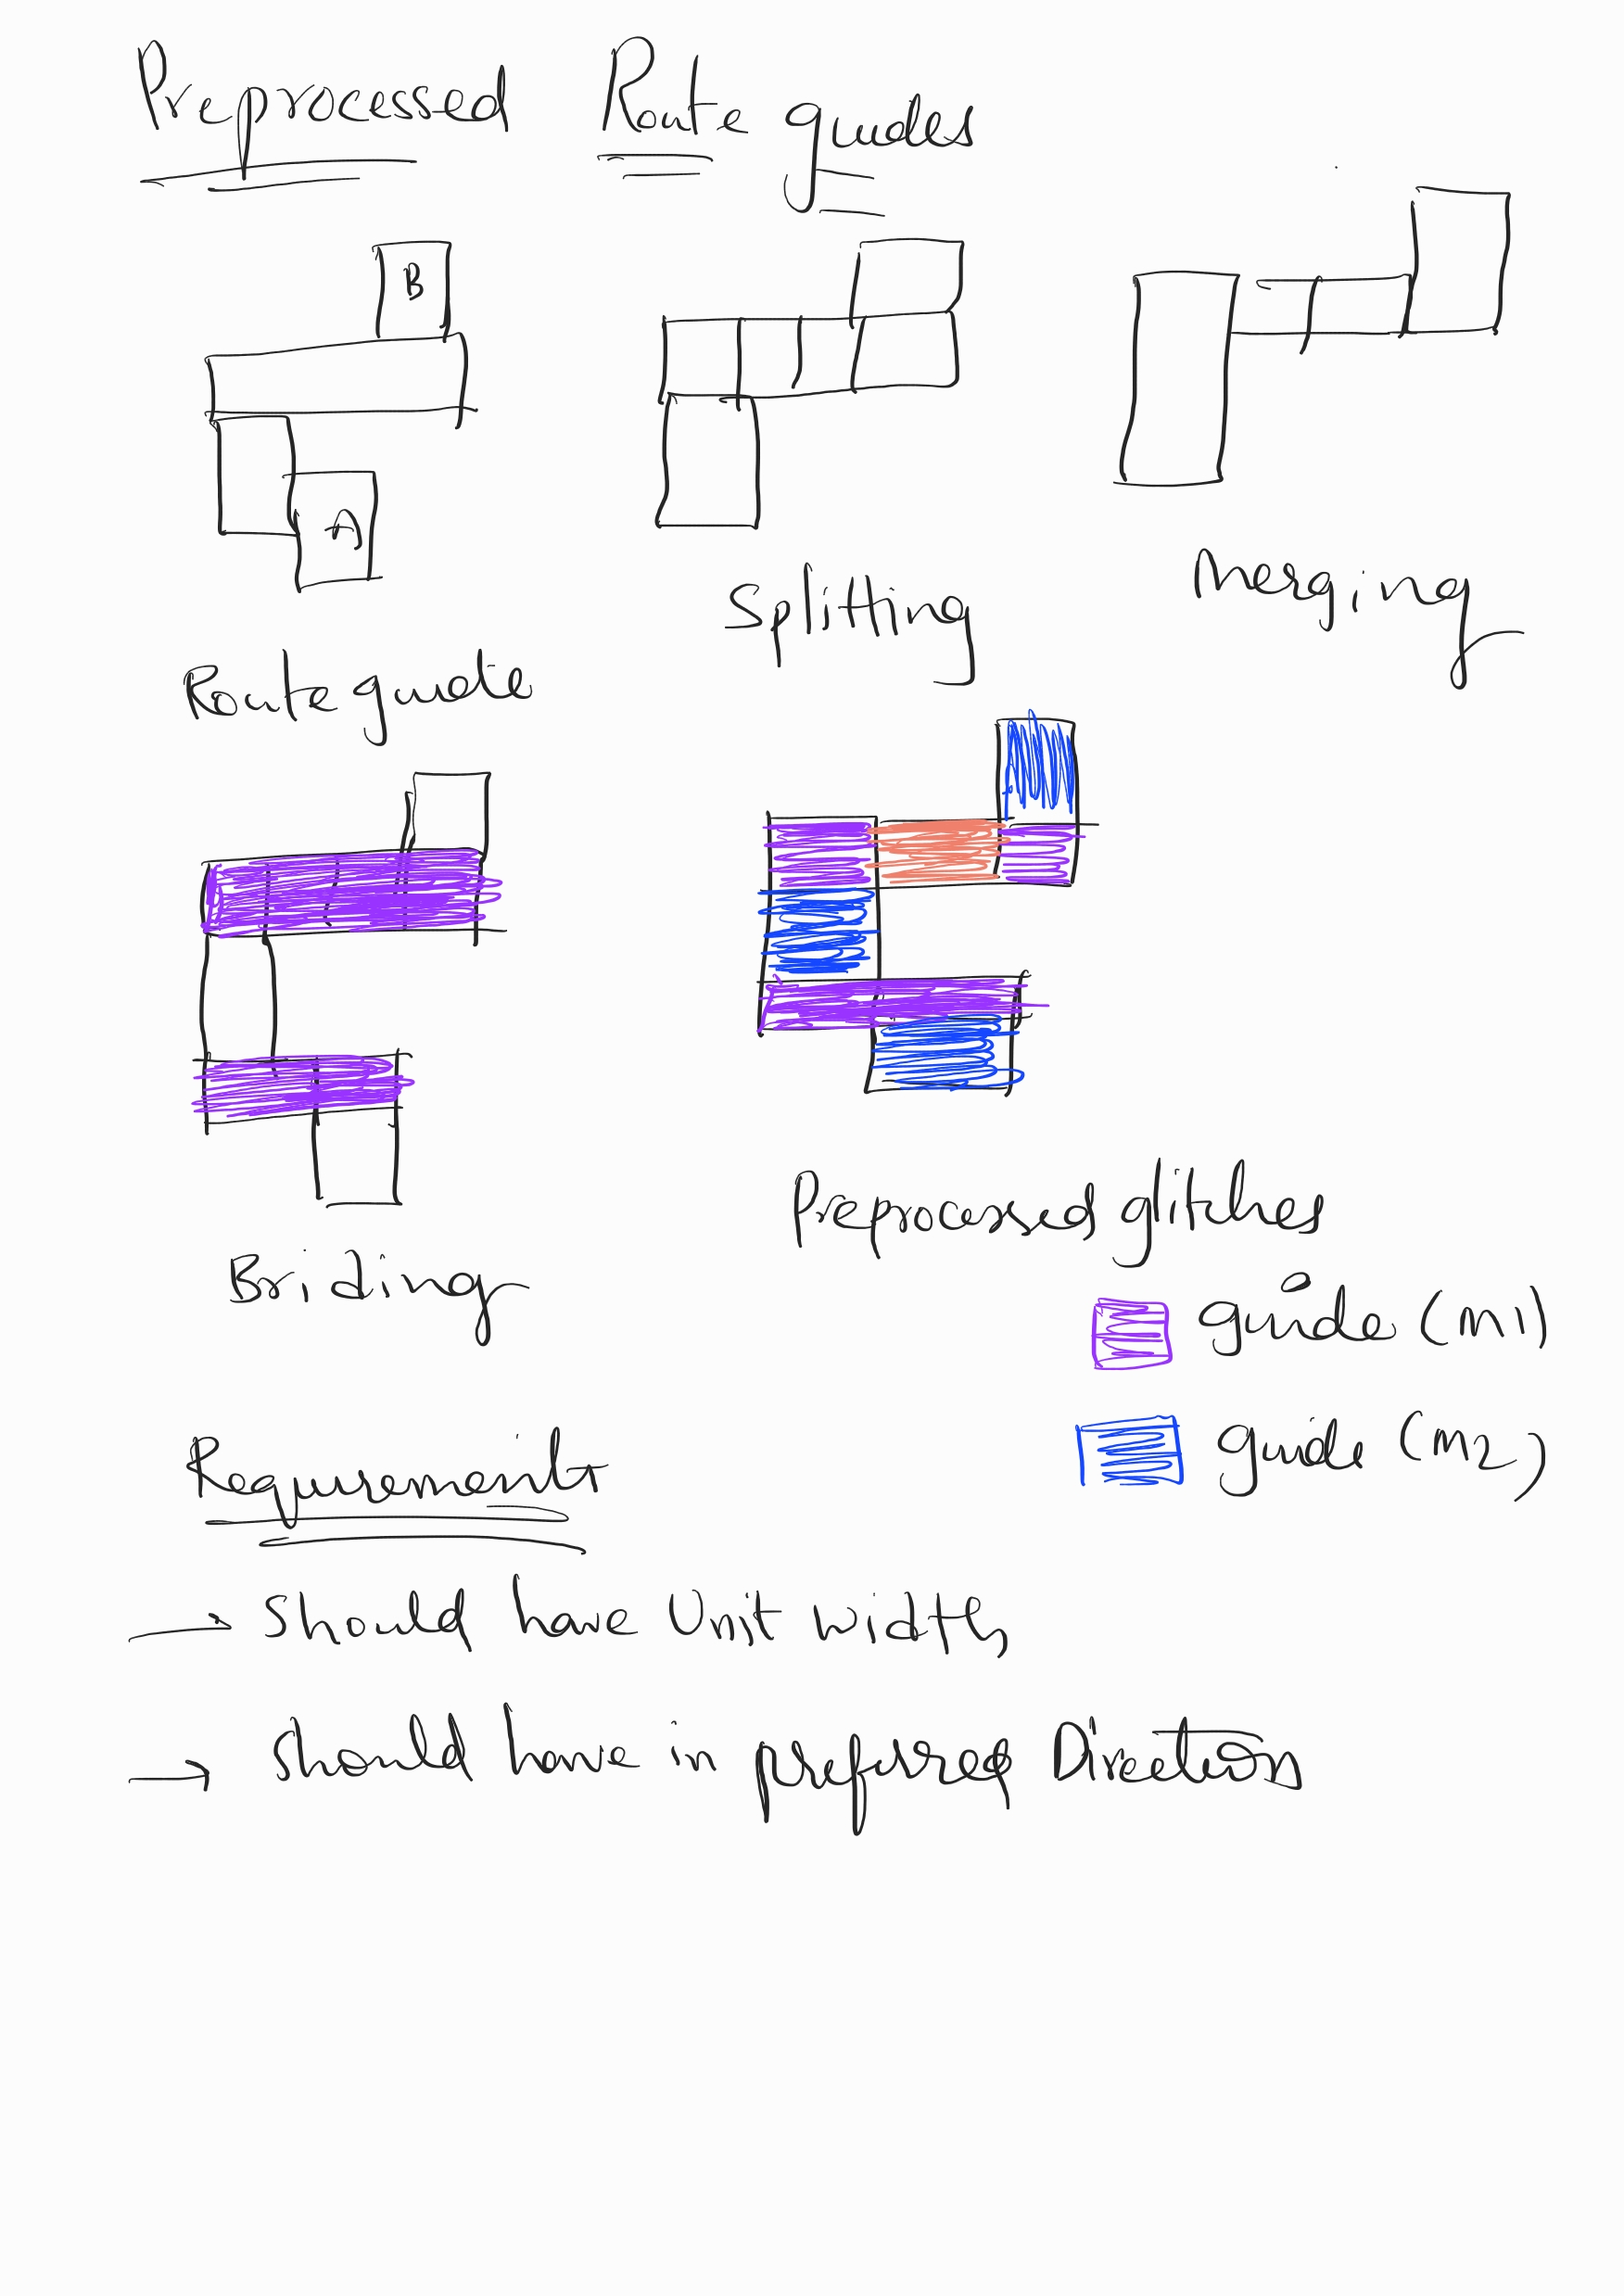 Preprocessed Route guides
B
A
Splitting
Merging
Route guide
Briding
Preprocessed glitches
guide (M1)
guide (M2)
Requirements
→ Should have Unit width
→ should have in preferred Direction